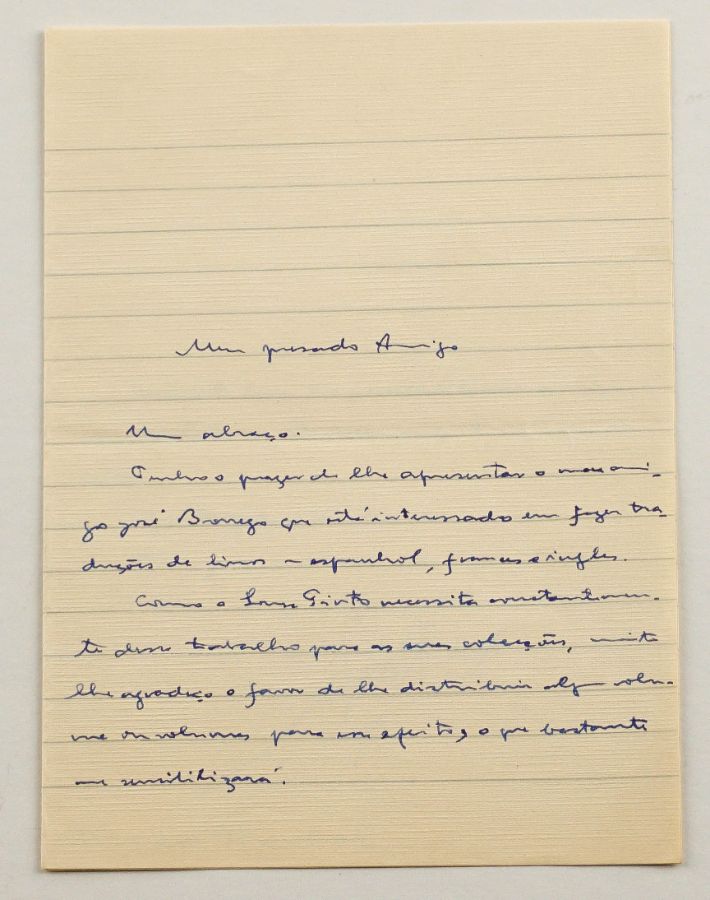 Meu presado Amigo
Um abraço.
Tenho o prazer de lhe apresentar o meu ami-
go José Borrego que está interessado em fazer tra-
duções de livros – espanhol, francês e inglês.
Como o Sousa Pinto necessita constantemen-
te desse trabalho para as suas colecções, muito
lhe agradeço o favor de lhe distribuir algum volu-
me ou volumes para esse efeito, o que bastante
me sensibilizará.